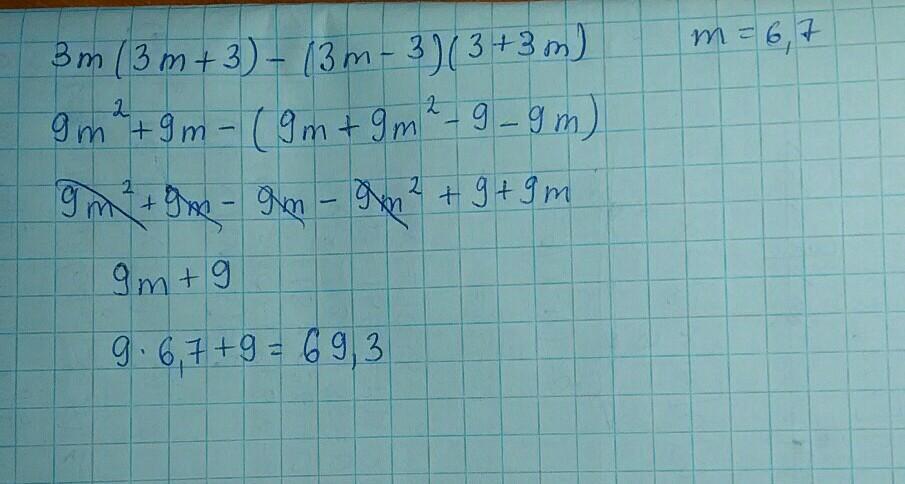 3m(3m+3)-(3m-3)(3+3m) m=6,7
9m²+9m-(9m+9m²-9-9m)
9m²+9m-9m-9m²+9+9m
9m+9
9·6,7+9=69,3